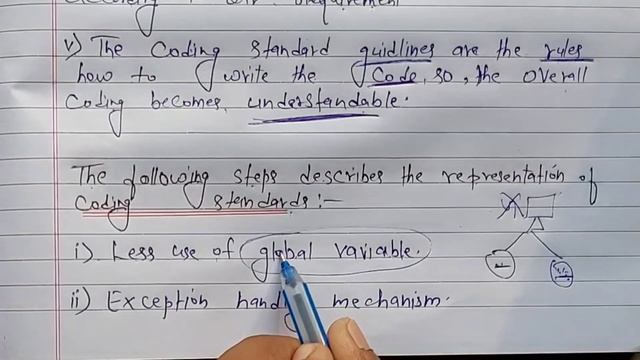 requirement
v) The Coding standard guidlines are the rules
how to write the Code, so, the overall
Coding becomes understandable.
The following steps describes the representation of
Coding standards :-
i) Less use of global variable.
ii) Exception handl mechanism.